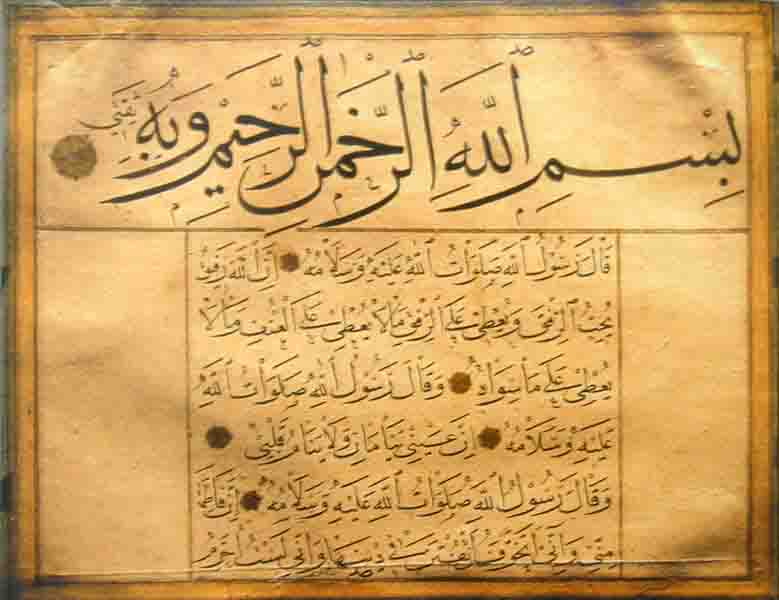 بِسْمِ اللَّهِ الرَّحْمٰنِ الرَّحِيمِ وَبِهِ ثِقَتِي
قَالَ رَسُولُ اللهِ صَلَوَاتُ اللهِ عَلَيْهِ وَسَلَامُهُ إِنَّ اللهَ رَفِيقٌ
يُحِبُّ الرِّفْقَ وَيُعْطِي عَلَى الرِّفْقِ مَا لَا يُعْطِي عَلَى الْعُنْفِ وَمَا لَا
يُعْطِي عَلَى مَا سِوَاهُ وَقَالَ رَسُولُ اللهِ صَلَوَاتُ اللهِ
عَلَيْهِ وَسَلَامُهُ إِنَّ عَيْنَيَّ تَنَامَانِ وَلَا يَنَامُ قَلْبِي
وَقَالَ رَسُولُ اللهِ صَلَوَاتُ اللهِ عَلَيْهِ وَسَلَامُهُ إِنَّ فَاطِمَةَ
مِنِّي وَإِنِّي أَتَخَوَّفُ أَنْ تُفْتَنَ فِي دِينِهَا وَإِنِّي لَسْتُ أُحَرِّمُ